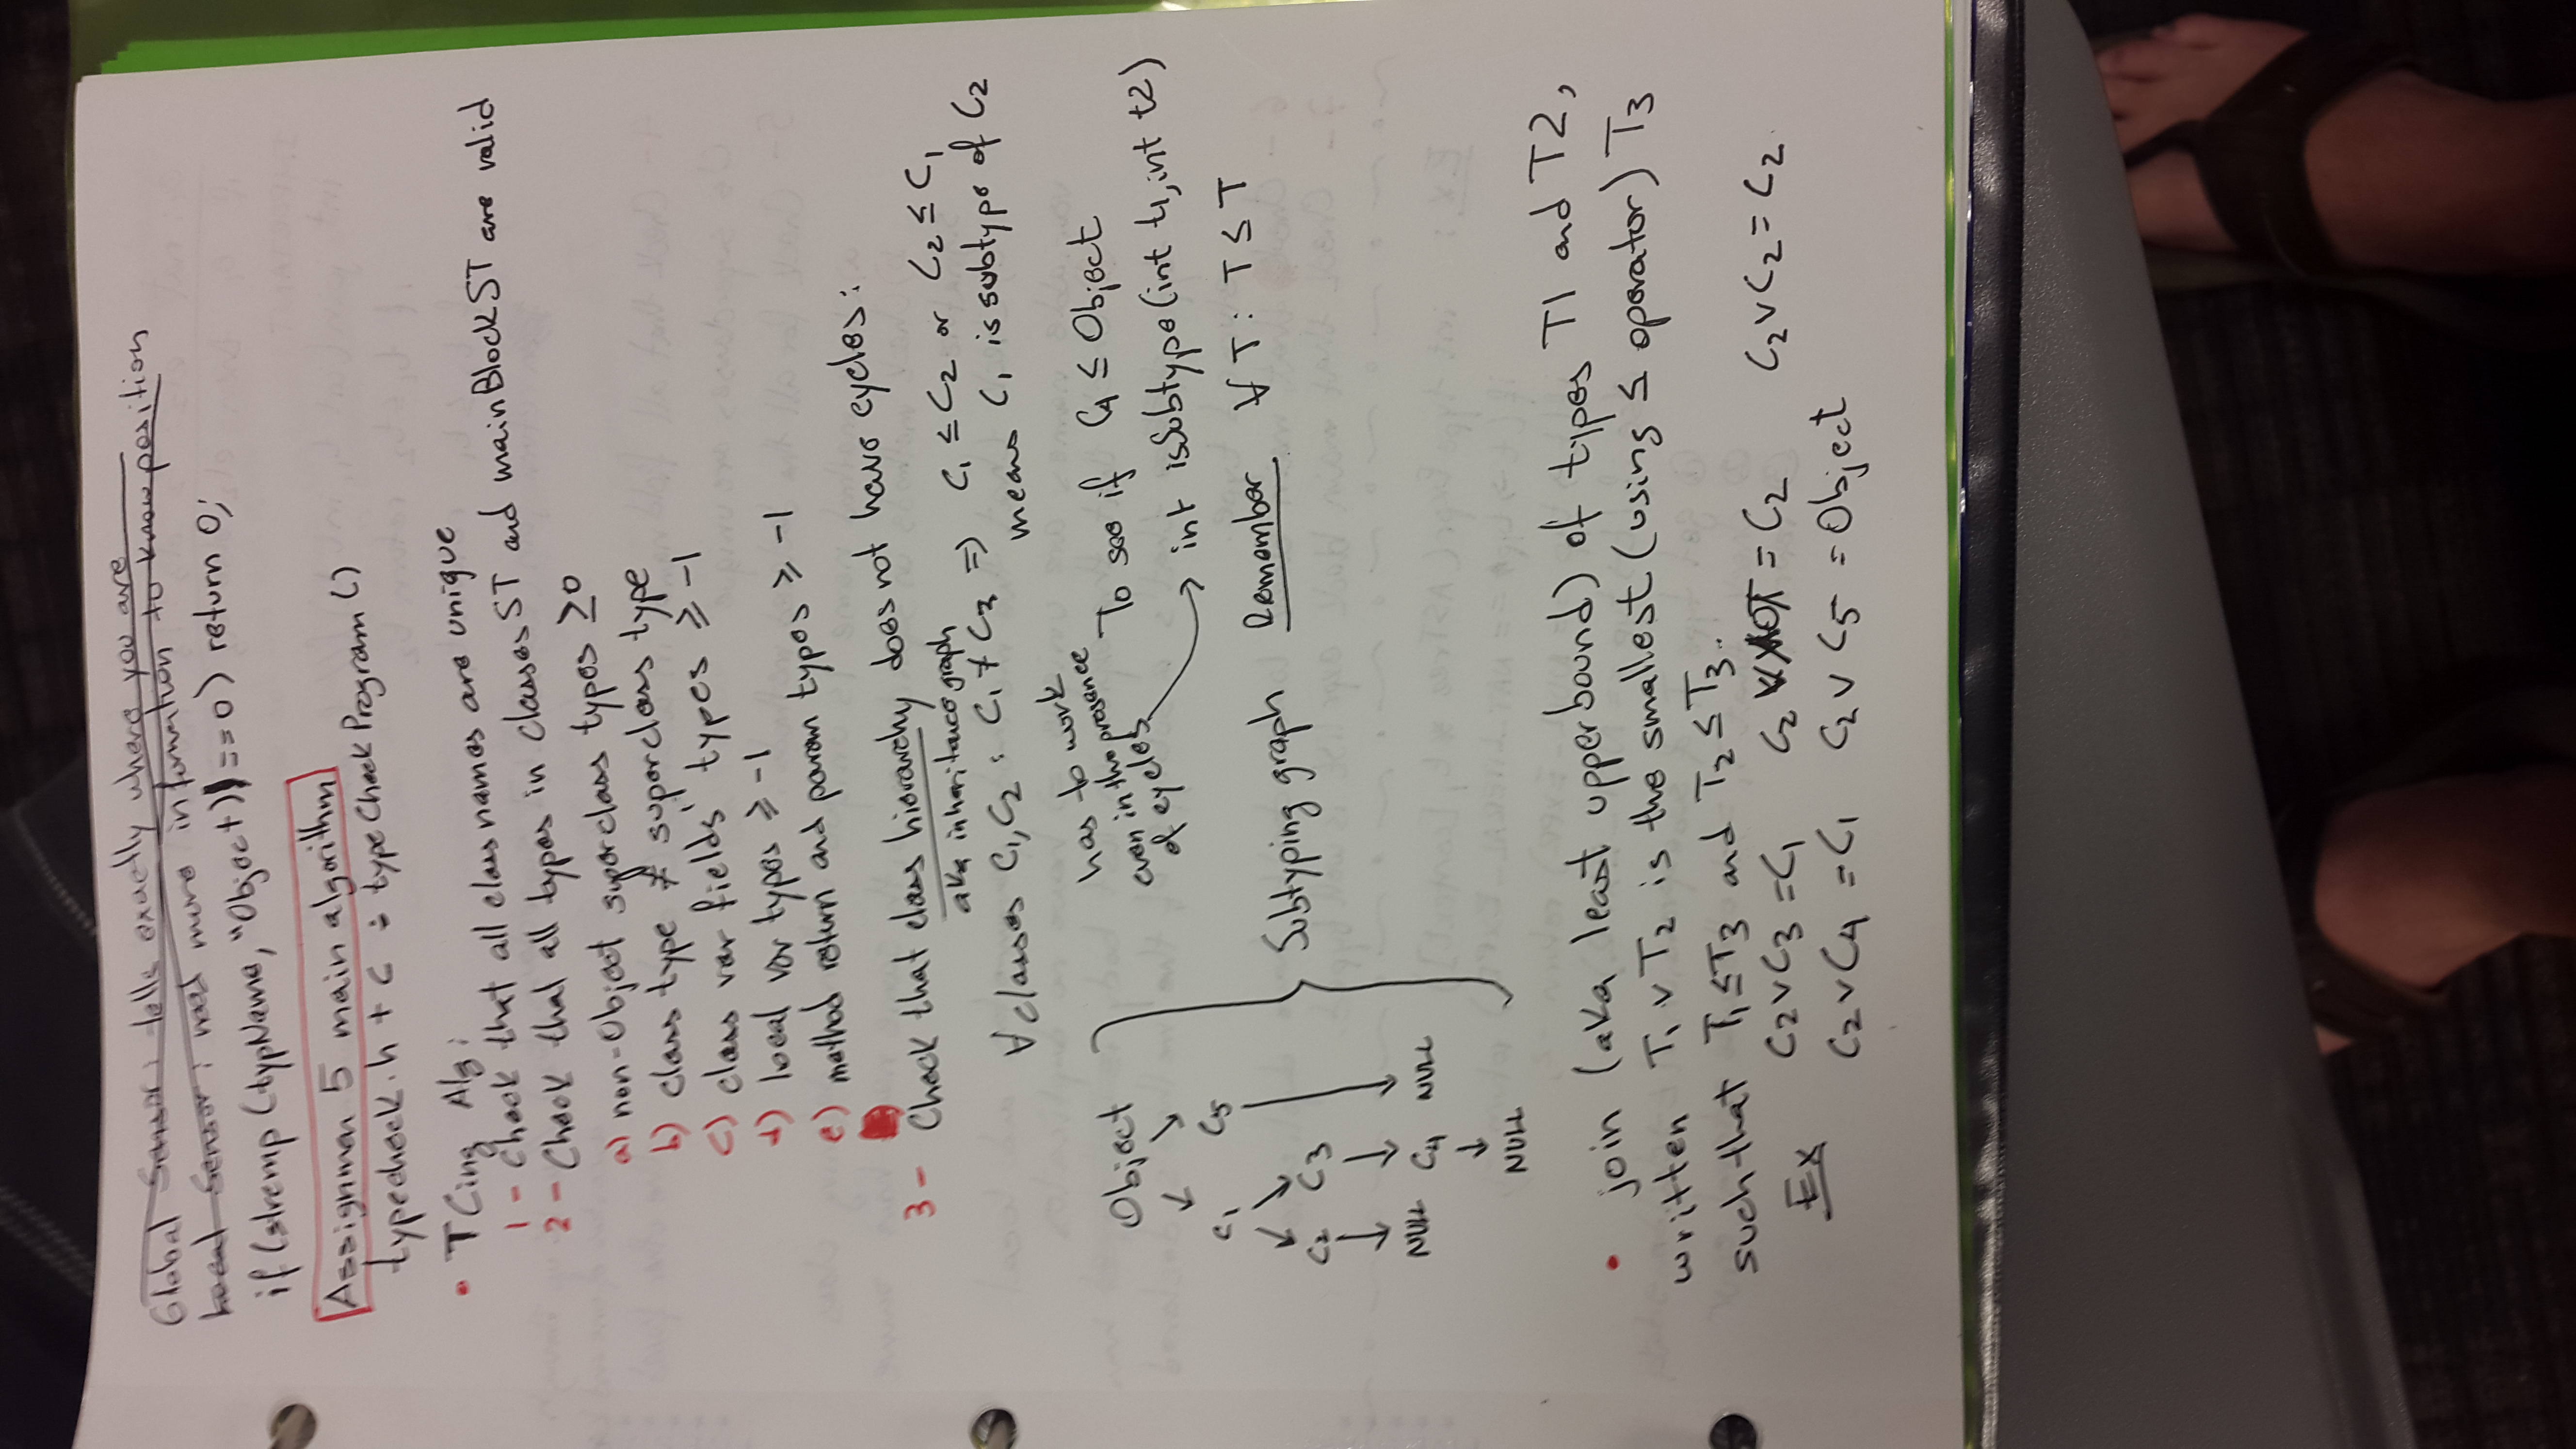 Global Sensor: tells exactly where you are
Local Sensor: need more information to know position
if (strcmp (typName, "Object))==0) return 0;
Assignmen 5 main algorithm
typecheck.h + c : typeCheckProgram()
• TCing Alg:
1 - Check that all class names are unique
2 - Check that all types in classesST and mainBlockST are valid
a) non-Object superclass types ≥0
b) class type ≠ superclass type
c) class var fields' types ≥ -1
d) local var types ≥ -1
e) method return and param types ≥ -1
3 - Check that class hierarchy does not have cycles:
aka inheritance graph
∀ classes C1, C2 : C1 ≠ C2 ⇒ C1 ≤ C2 or C2 ≤ C1
means C1 is subtype of C2
has to work
even in the presence
of cycles
To see if C4 ≤ Object
→ int isSubtype(int t1, int t2)
Object
C1 C5
C2 C3
NULL C4 NULL
NULL
Subtyping graph Remember ∀ T: T ≤ T
• join (aka least upperbound) of types T1 and T2,
written T1 ∨ T2 is the smallest (using ≤ operator) T3
such that T1 ≤ T3 and T2 ≤ T3.
Ex C2 ∨ C3 = C1 C2 = C2 C2 ∨ C2 = C2
C2 ∨ C4 = C1 C2 ∨ C5 = Object